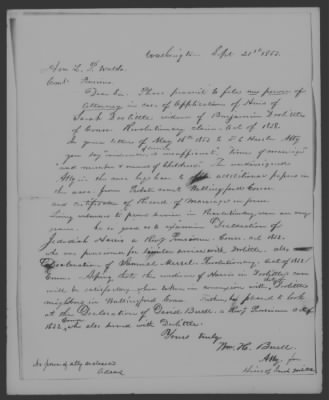 Washington Sept 20th 1853.
Hon L. P. Waldo
Com Pensions
Dear Sir. Please permit to file my power of
Attorney in case of Application of Heirs of
Sarah Doolittle widow of Benjamin Doolittle
of Conn Revolutionary claim. Act of 1838.
In your letter of May 16th 1853 to
you say "evidence of service is insufficient". Time of marriage"
and number & names of Children". The undersigned
Atty in the case begs leave to file additional papers in
the case from Probate court Wallingford Conn
and certificate of Record of Marriage in from
Living witnesses to prove service in Revolutionary war are very
rare. Be so good as to examine Declaration of
Jedediah Harris a Revy Pensioner Conn. Act 1832.
He was pensioned for service with Doolittle. also
Declaration of Samuel Merrel Revolutionary. Act of 1832
Conn. Hoping that the evidence of Harris in Doolittle's case
will be satisfactory when taken in connexion with Doolittle
in Wallingford Conn. Further, be pleased to look
at the Declaration of David Buell a Revy Pensioner Act of
1832, Conn who also served with Doolittle.
Yours truly
Wm H. Buell
Atty for
Heirs of Sarah Doolittle
My power of atty enclosed